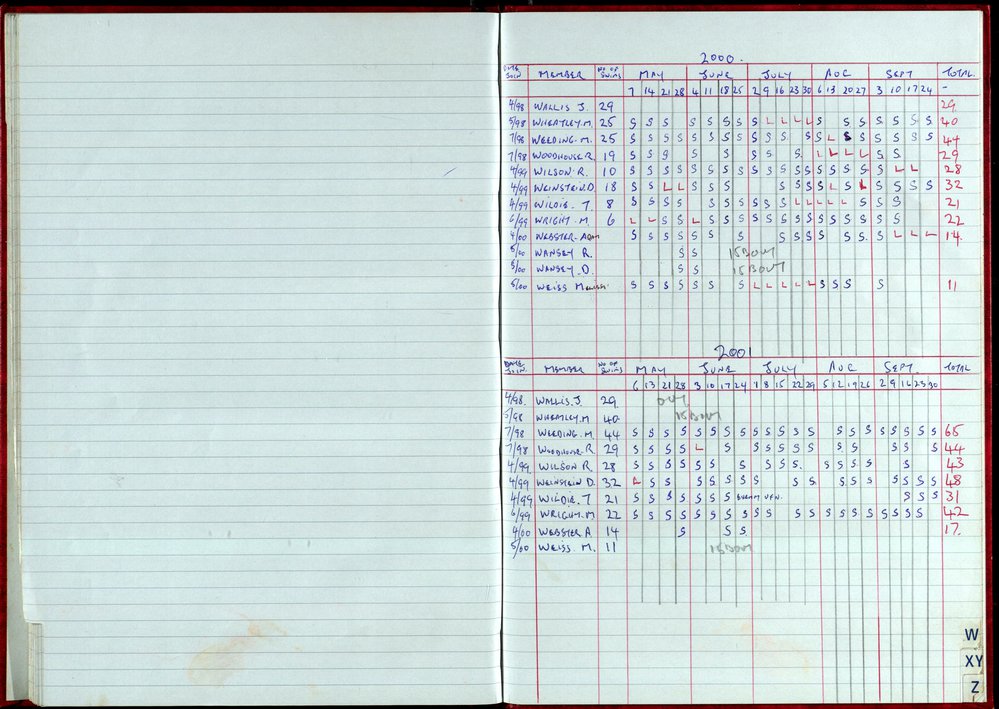 2000.
DATE JOIN MEMBER NO OF SWIMS MAY JUNE JULY AUG SEPT TOTAL
7 14 21 28 4 11 18 25 2 9 16 23 30 6 13 20 27 3 10 17 24 -
4/98 WALLIS J. 29 29
5/98 WHEATLEY.M. 25 S S S S S S S S S L L L L S S S S S S S S 40
7/98 WEEDING. M. 25 S S S S S S S S S S S S S S L S S S S S S 44
7/98 WOODHOUSE R. 19 S S S S S S S S L L L L S S 29
4/99 WILSON. R. 10 S S S S S S S S S S S S S S S S S S L L 28
4/99 WEINSTEIN.D. 18 S S L L S S S S S S S L S L S S S S 32
4/99 WILDIE. T. 8 S S S S S S S S S S L L L L S S S 21
6/99 WRIGHT. M. 6 L L S S L S S S S S S S S S S S S S S 22
4/00 WEBSTER. ADAM S S S S S S S S S S S S S S L L L 14.
5/00 WANSEY R. S S 15 BOUT
5/00 WANSEY. D. S S 15 BOUT
5/00 WEISS S S S S S S S L L L L L S S S S 11
2001
DATE JOIN. MEMBER NO OF SWIMS MAY JUNE JULY AUG SEPT. TOTAL
6 13 21 28 3 10 17 24 1 8 15 22 29 5 12 19 26 2 9 16 23 30
4/98. WALLIS. J. 29 OUT
5/98 WHEATLEY. M 40 15 BOUT
7/98 WEEDING. M. 44 S S S S S S S S S S S S S S S S S S S S 65
7/98 WOODHOUSE. R. 29 S S S S L S S S S S S S S S S 44
4/99. WILSON R. 28 S S S S S S S S S S S S S S S 43
4/99 WEINSTEIN D. 32 L S S S S S S S S S S S S S S S S 48
4/99 WILDIE. T 21 S S S S S S S S S S 31
6/99 WRIGHT. M 22 S S S S S S S S S S S S S S S S S S S S 42
4/00 WEBSTER. A 14 S S S 17.
5/00 WEISS. M. 11 15 BOUT
W
XY
Z